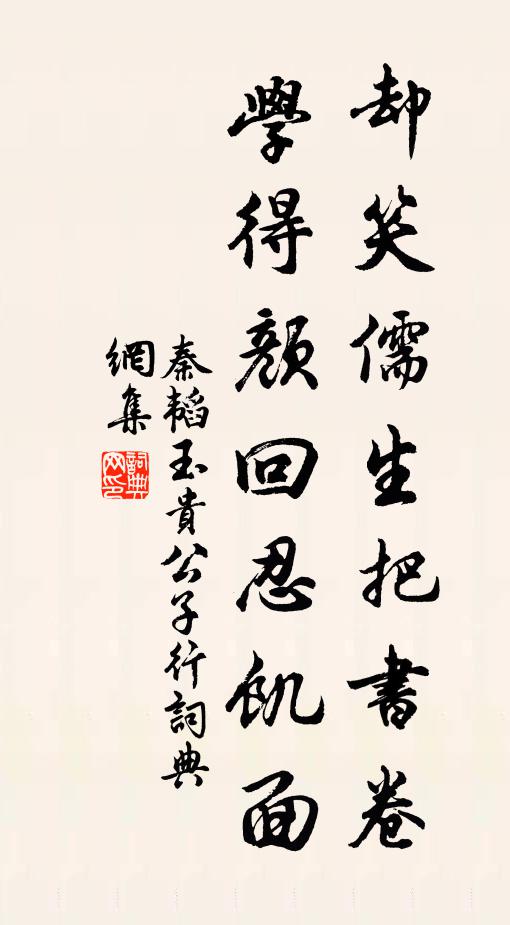 却笑儒生把書卷
學得顏回忍飢面
秦韜玉貴公子行詞典
網集
詞典
网印